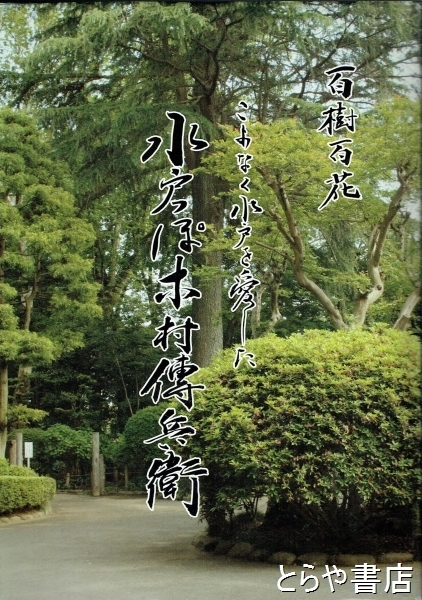 百樹百花
こよなく水戸を愛した
水戸っぽ木村傳兵衛
とらや書店